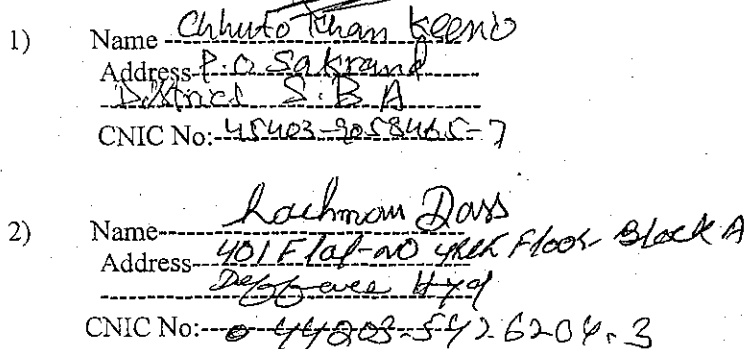 1) Name Chhuto Khan Keerio
Address P.O Sakrand
District S.B.A
CNIC No: 45403-9058465-7
2) Name Lachman Dass
Address 401 Flat-no 4th Floor Block A
Deffence Hyd
CNIC No: 44203-5426204-3